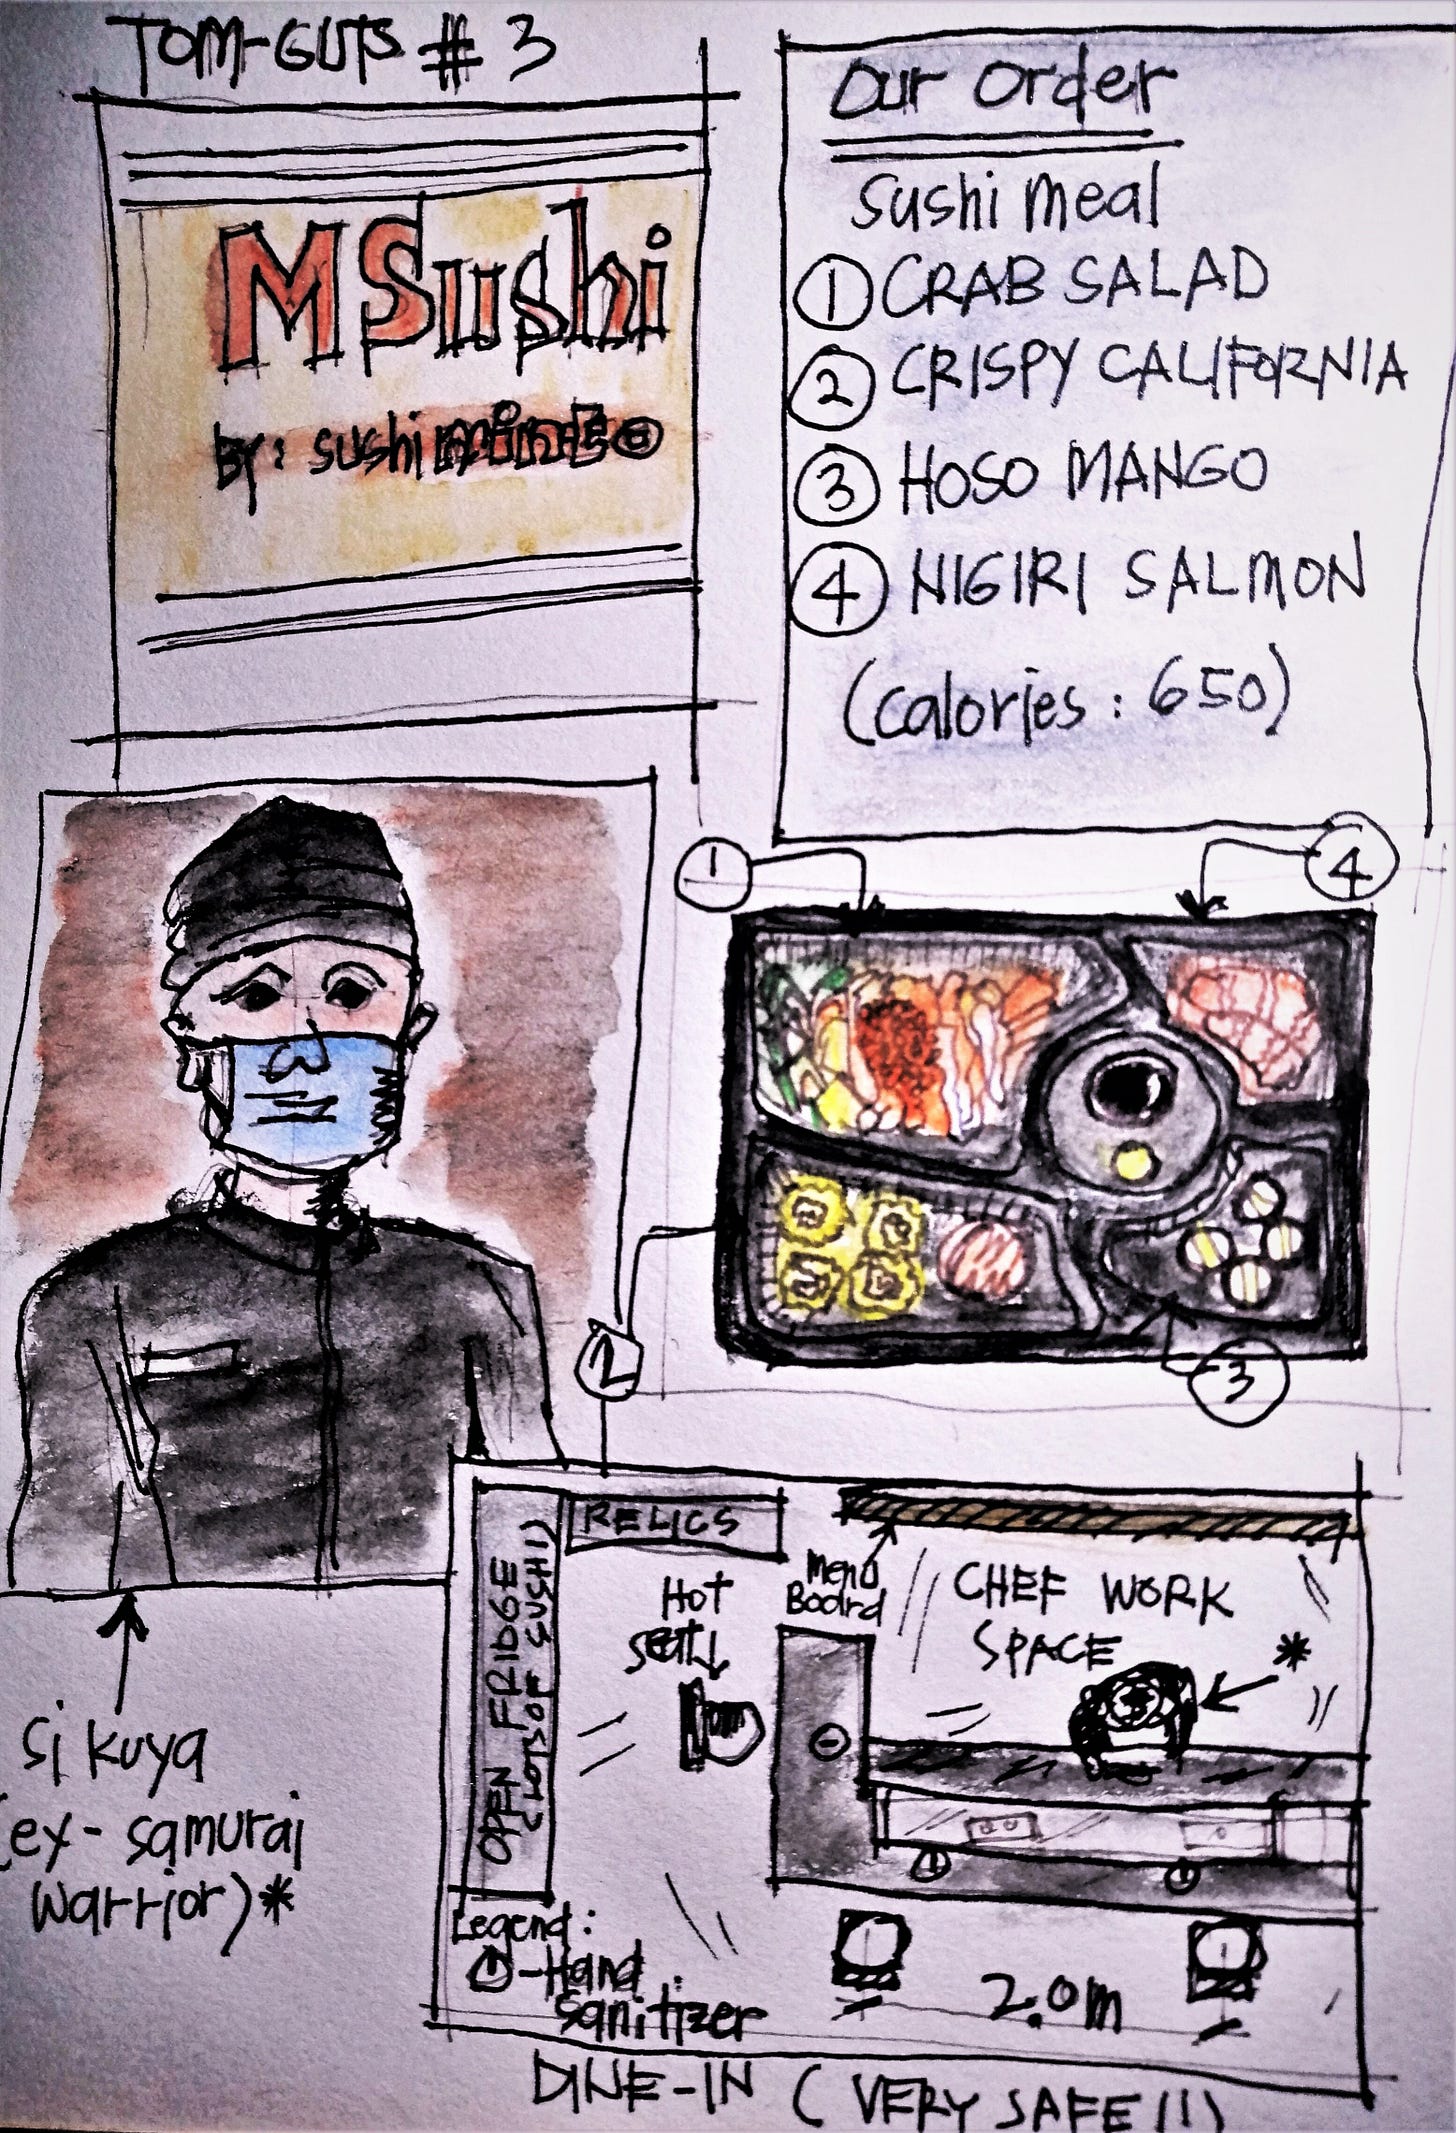 TOM-GUTS # 3
MSushi
By: sushi
Our order
Sushi meal
1 CRAB SALAD
2 CRISPY CALIFORNIA
3 HOSO MANGO
4 NIGIRI SALMON
(calories: 650)
1
4
2
3
si kuya
(ex-samurai
warrior)*
RELICS
OPEN FRIDGE
(LOTS OF SUSHI)
Hot
seat
Menu
Board
CHEF WORK
SPACE
*
Legend:
-Hand
sanitizer
2.0m
DINE-IN (VERY SAFE!!!)